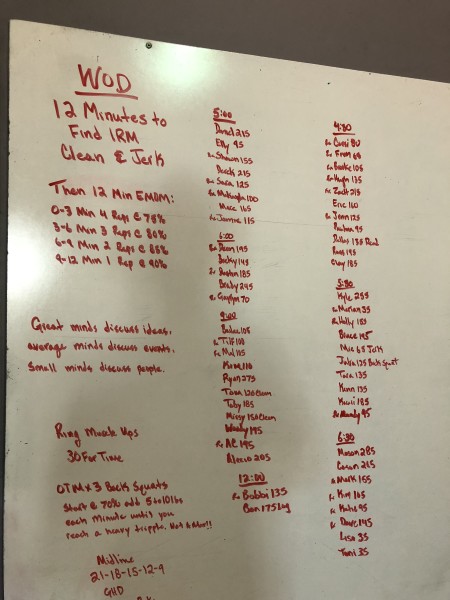 WOD
12 Minutes to
Find 1RM
Clean & Jerk
Then 12 Min EMOM:
0-3 Min 4 Reps @ 75%
3-6 Min 3 Reps @ 80%
6-9 Min 2 Reps @ 85%
9-12 Min 1 Rep @ 90%
Great minds discuss ideas.
average minds discuss events.
Small minds discuss people.
Ring Muscle Ups
30 For Time
OTM + 3 Back Squats
Start @ 70% add 5to10lbs
each minute until you
reach a heavy tripple. Not
Midline
21-18-15-12-9
GHD
5:00
Daniel 215
Elly 95
Rx Shawn 155
Derek 215
Rx Sara 125
Rx 100
Marc 165
Rx Jasmine 115
6:00
Rx Dawn 195
Becky 145
Rx 185
Brady 245
Rx Gaylyn 70
9:00
105
Rx Tiff 100
Rx Mel 115
110
Ryan 275
Tara 120 Clean
Toby 185
Missy 150 Clean
Wendy 195
Rx AC 195
Alecio 205
12:00
Rx Bobbi 135
Ben 175
4:30
Rx 80
Rx Fran 65
Rx Brooke 105
Rx 135
Rx Zach 215
Eric 110
Rx Jenn 125
95
Dallas 135 Dead
Russ 195
Clay 185
5:30
Kyle 255
Rx Marian 35
Rx Holly 185
Bruce 195
65 Jerk
Julia 125 Back Squat
Tara 135
Kenn 135
185
Rx Mandy 95
6:30
Mason 285
215
Rx Mark 155
Rx Kim 105
Rx Katie 95
Rx Dave 145
Lisa 35
Toni 35